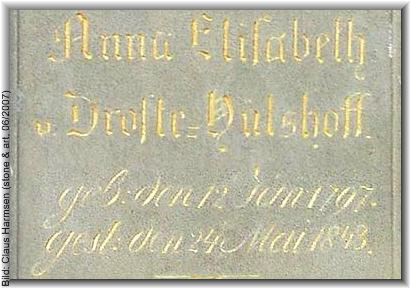 Anna Eliſabeth
v. Droſte=Hülshoff.
geb: den 12. Jan 1797.
geſt: den 24. Mai 1848.
Bild: Claus Harmsen (stone & art, 06/2007)